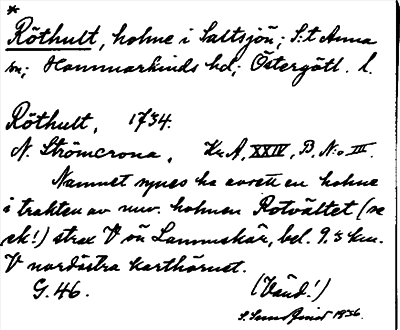 *
Röthult, holme i Saltsjön; S:t Anna
sn; Hammarkinds hd; Östergötl. l.
Röthult, 1734.
N. Strömcrona, Kr. A, XXIV, B, N:o III.
Namnet synes ha avsett en holme
i trakten av nuv. holmen Rotvältet (se
ek!) strax V om Lammskär, bel. 9.5 km.
V nordöstra karthörnet.
G. 46.
(Vänd!)
1936